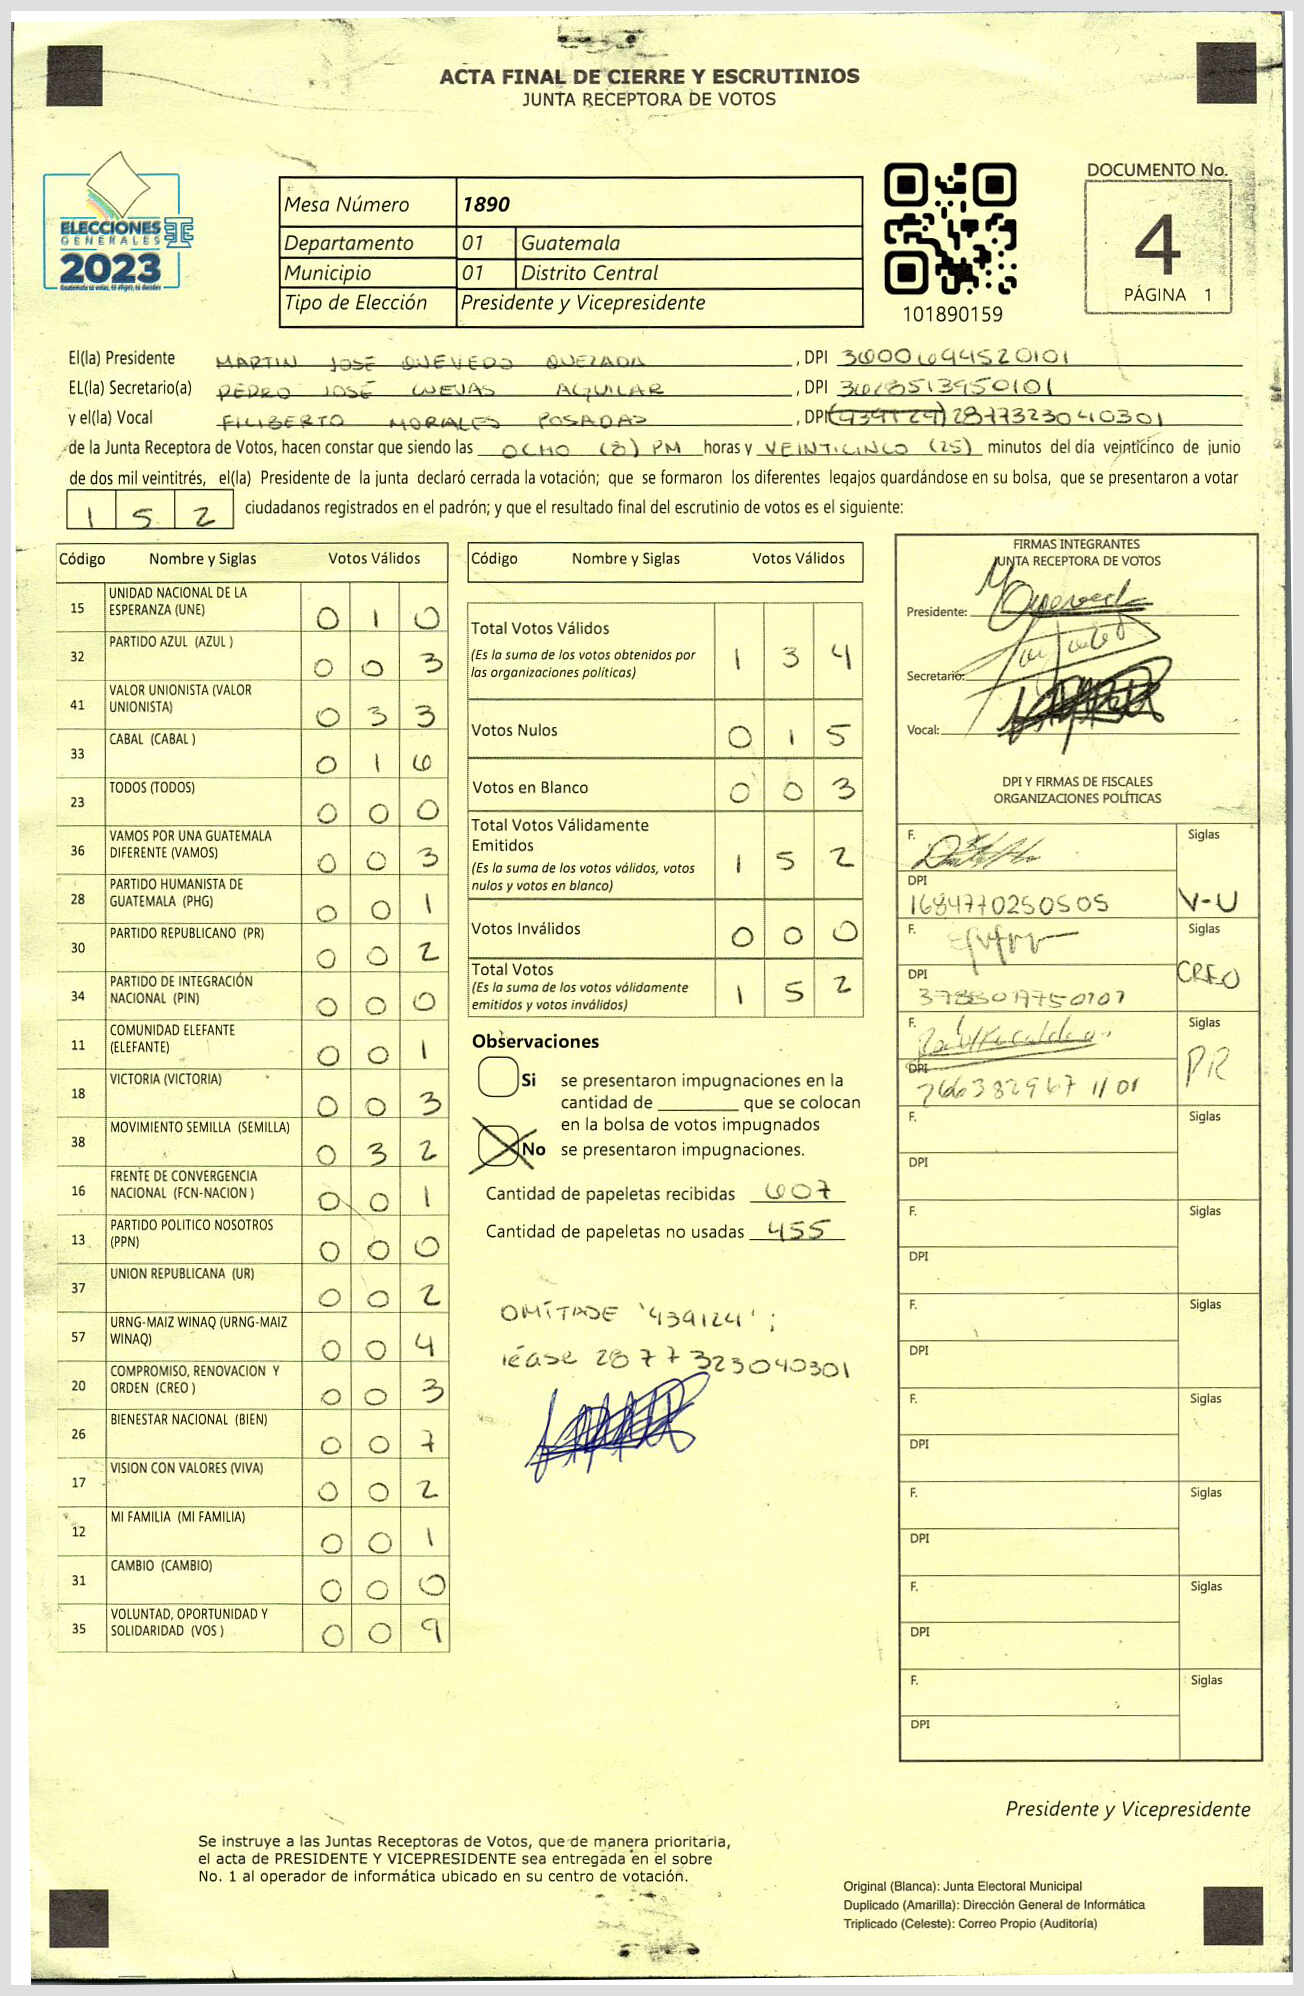 ACTA FINAL DE CIERRE Y ESCRUTINIOS
JUNTA RECEPTORA DE VOTOS
ELECCIONES
GENERALES
2023
Mesa Número 1890
Departamento 01 Guatemala
Municipio 01 Distrito Central
Tipo de Elección Presidente y Vicepresidente
101890159
DOCUMENTO No.
4
PÁGINA 1
El(la) Presidente MARTIN JOSÉ QUEVEDO QUEZADA, DPI 3600694520101
EL(la) Secretario(a) PEDRO JOSÉ CUEVAS AGUILAR, DPI 3628513950101
y el(la) Vocal FILIBERTO MORALES POSADAS, DPI 2877323040301
de la Junta Receptora de Votos, hacen constar que siendo las OCHO (8) PM horas y VEINTICINCO (25) minutos del día veinticinco de junio
de dos mil veintitrés, el(la) Presidente de la junta declaró cerrada la votación; que se formaron los diferentes legajos quardándose en su bolsa, que se presentaron a votar
1 5 2 ciudadanos registrados en el padrón; y que el resultado final del escrutinio de votos es el siguiente:
Código Nombre y Siglas Votos Válidos
15 UNIDAD NACIONAL DE LA ESPERANZA (UNE) 0 1 0
32 PARTIDO AZUL (AZUL ) 0 0 3
41 VALOR UNIONISTA (VALOR UNIONISTA) 0 3 3
33 CABAL (CABAL ) 0 1 6
23 TODOS (TODOS) 0 0 0
36 VAMOS POR UNA GUATEMALA DIFERENTE (VAMOS) 0 0 3
28 PARTIDO HUMANISTA DE GUATEMALA (PHG) 0 0 1
30 PARTIDO REPUBLICANO (PR) 0 0 2
34 PARTIDO DE INTEGRACIÓN NACIONAL (PIN) 0 0 0
11 COMUNIDAD ELEFANTE (ELEFANTE) 0 0 1
18 VICTORIA (VICTORIA) 0 0 3
38 MOVIMIENTO SEMILLA (SEMILLA) 0 3 2
16 FRENTE DE CONVERGENCIA NACIONAL (FCN-NACION ) 0 0 1
13 PARTIDO POLITICO NOSOTROS (PPN) 0 0 0
37 UNION REPUBLICANA (UR) 0 0 2
57 URNG-MAIZ WINAQ (URNG-MAIZ WINAQ) 0 0 4
20 COMPROMISO, RENOVACION Y ORDEN (CREO ) 0 0 3
26 BIENESTAR NACIONAL (BIEN) 0 0 7
17 VISION CON VALORES (VIVA) 0 0 2
12 MI FAMILIA (MI FAMILIA) 0 0 1
31 CAMBIO (CAMBIO) 0 0 0
35 VOLUNTAD, OPORTUNIDAD Y SOLIDARIDAD (VOS ) 0 0 9
Código Nombre y Siglas Votos Válidos
Total Votos Válidos 1 3 4
(Es la suma de los votos obtenidos por
las organizaciones políticas)
Votos Nulos 0 1 5
Votos en Blanco 0 0 3
Total Votos Válidamente
Emitidos 1 5 2
(Es la suma de los votos válidos, votos
nulos y votos en blanco)
Votos Inválidos 0 0 0
Total Votos 1 5 2
(Es la suma de los votos válidamente
emitidos y votos inválidos)
Observaciones
Si se presentaron impugnaciones en la
cantidad de ________ que se colocan
en la bolsa de votos impugnados
No se presentaron impugnaciones.
Cantidad de papeletas recibidas 607
Cantidad de papeletas no usadas 455
OMÍTASE '439124';
léase 2877323040301
FIRMAS INTEGRANTES
JUNTA RECEPTORA DE VOTOS
Presidente:
Secretario:
Vocal:
DPI Y FIRMAS DE FISCALES
ORGANIZACIONES POLÍTICAS
F. Siglas
DPI
1684770250505 V-U
F. Siglas
DPI CREO
F. Siglas
DPI PR
F. Siglas
DPI
F. Siglas
DPI
F. Siglas
DPI
F. Siglas
DPI
F. Siglas
DPI
F. Siglas
DPI
F. Siglas
DPI
Presidente y Vicepresidente
Se instruye a las Juntas Receptoras de Votos, que de manera prioritaria,
el acta de PRESIDENTE Y VICEPRESIDENTE sea entregada en el sobre
No. 1 al operador de informática ubicado en su centro de votación.
Original (Blanca): Junta Electoral Municipal
Duplicado (Amarilla): Dirección General de Informática
Triplicado (Celeste): Correo Propio (Auditoría)